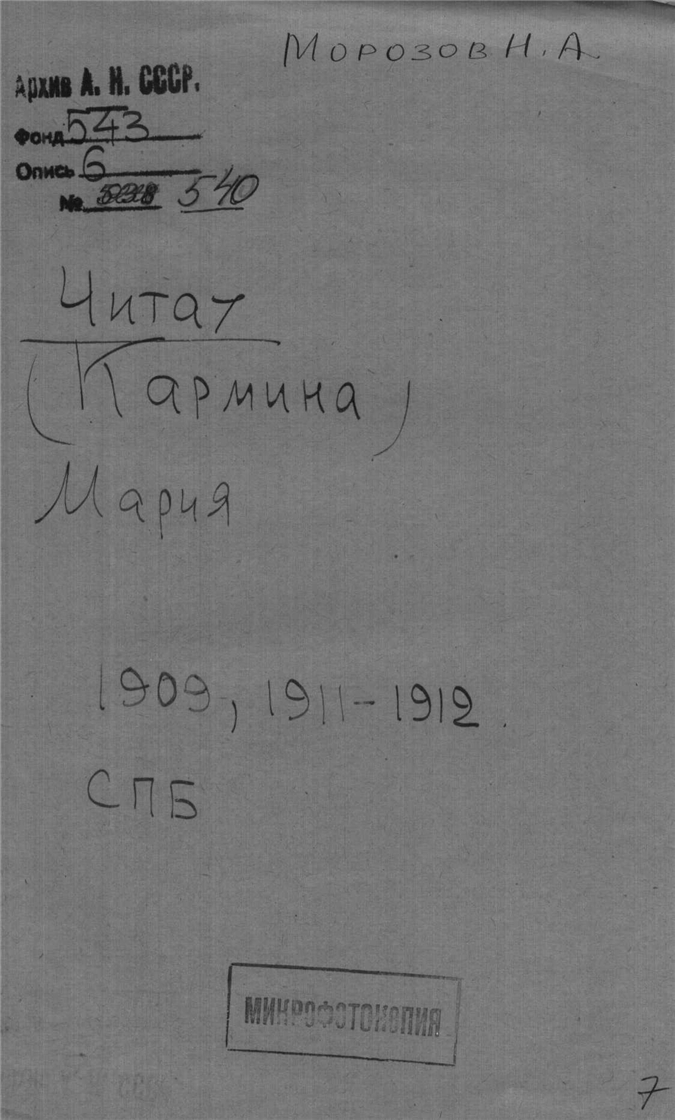 Морозов Н. А.
Архив А. Н. СССР.
Фонд 543
Опись 6
№ 540
Читау
(Кармина)
Мария
1909, 1911-1912.
СПБ
МИКРОФОТОКОПИЯ
7